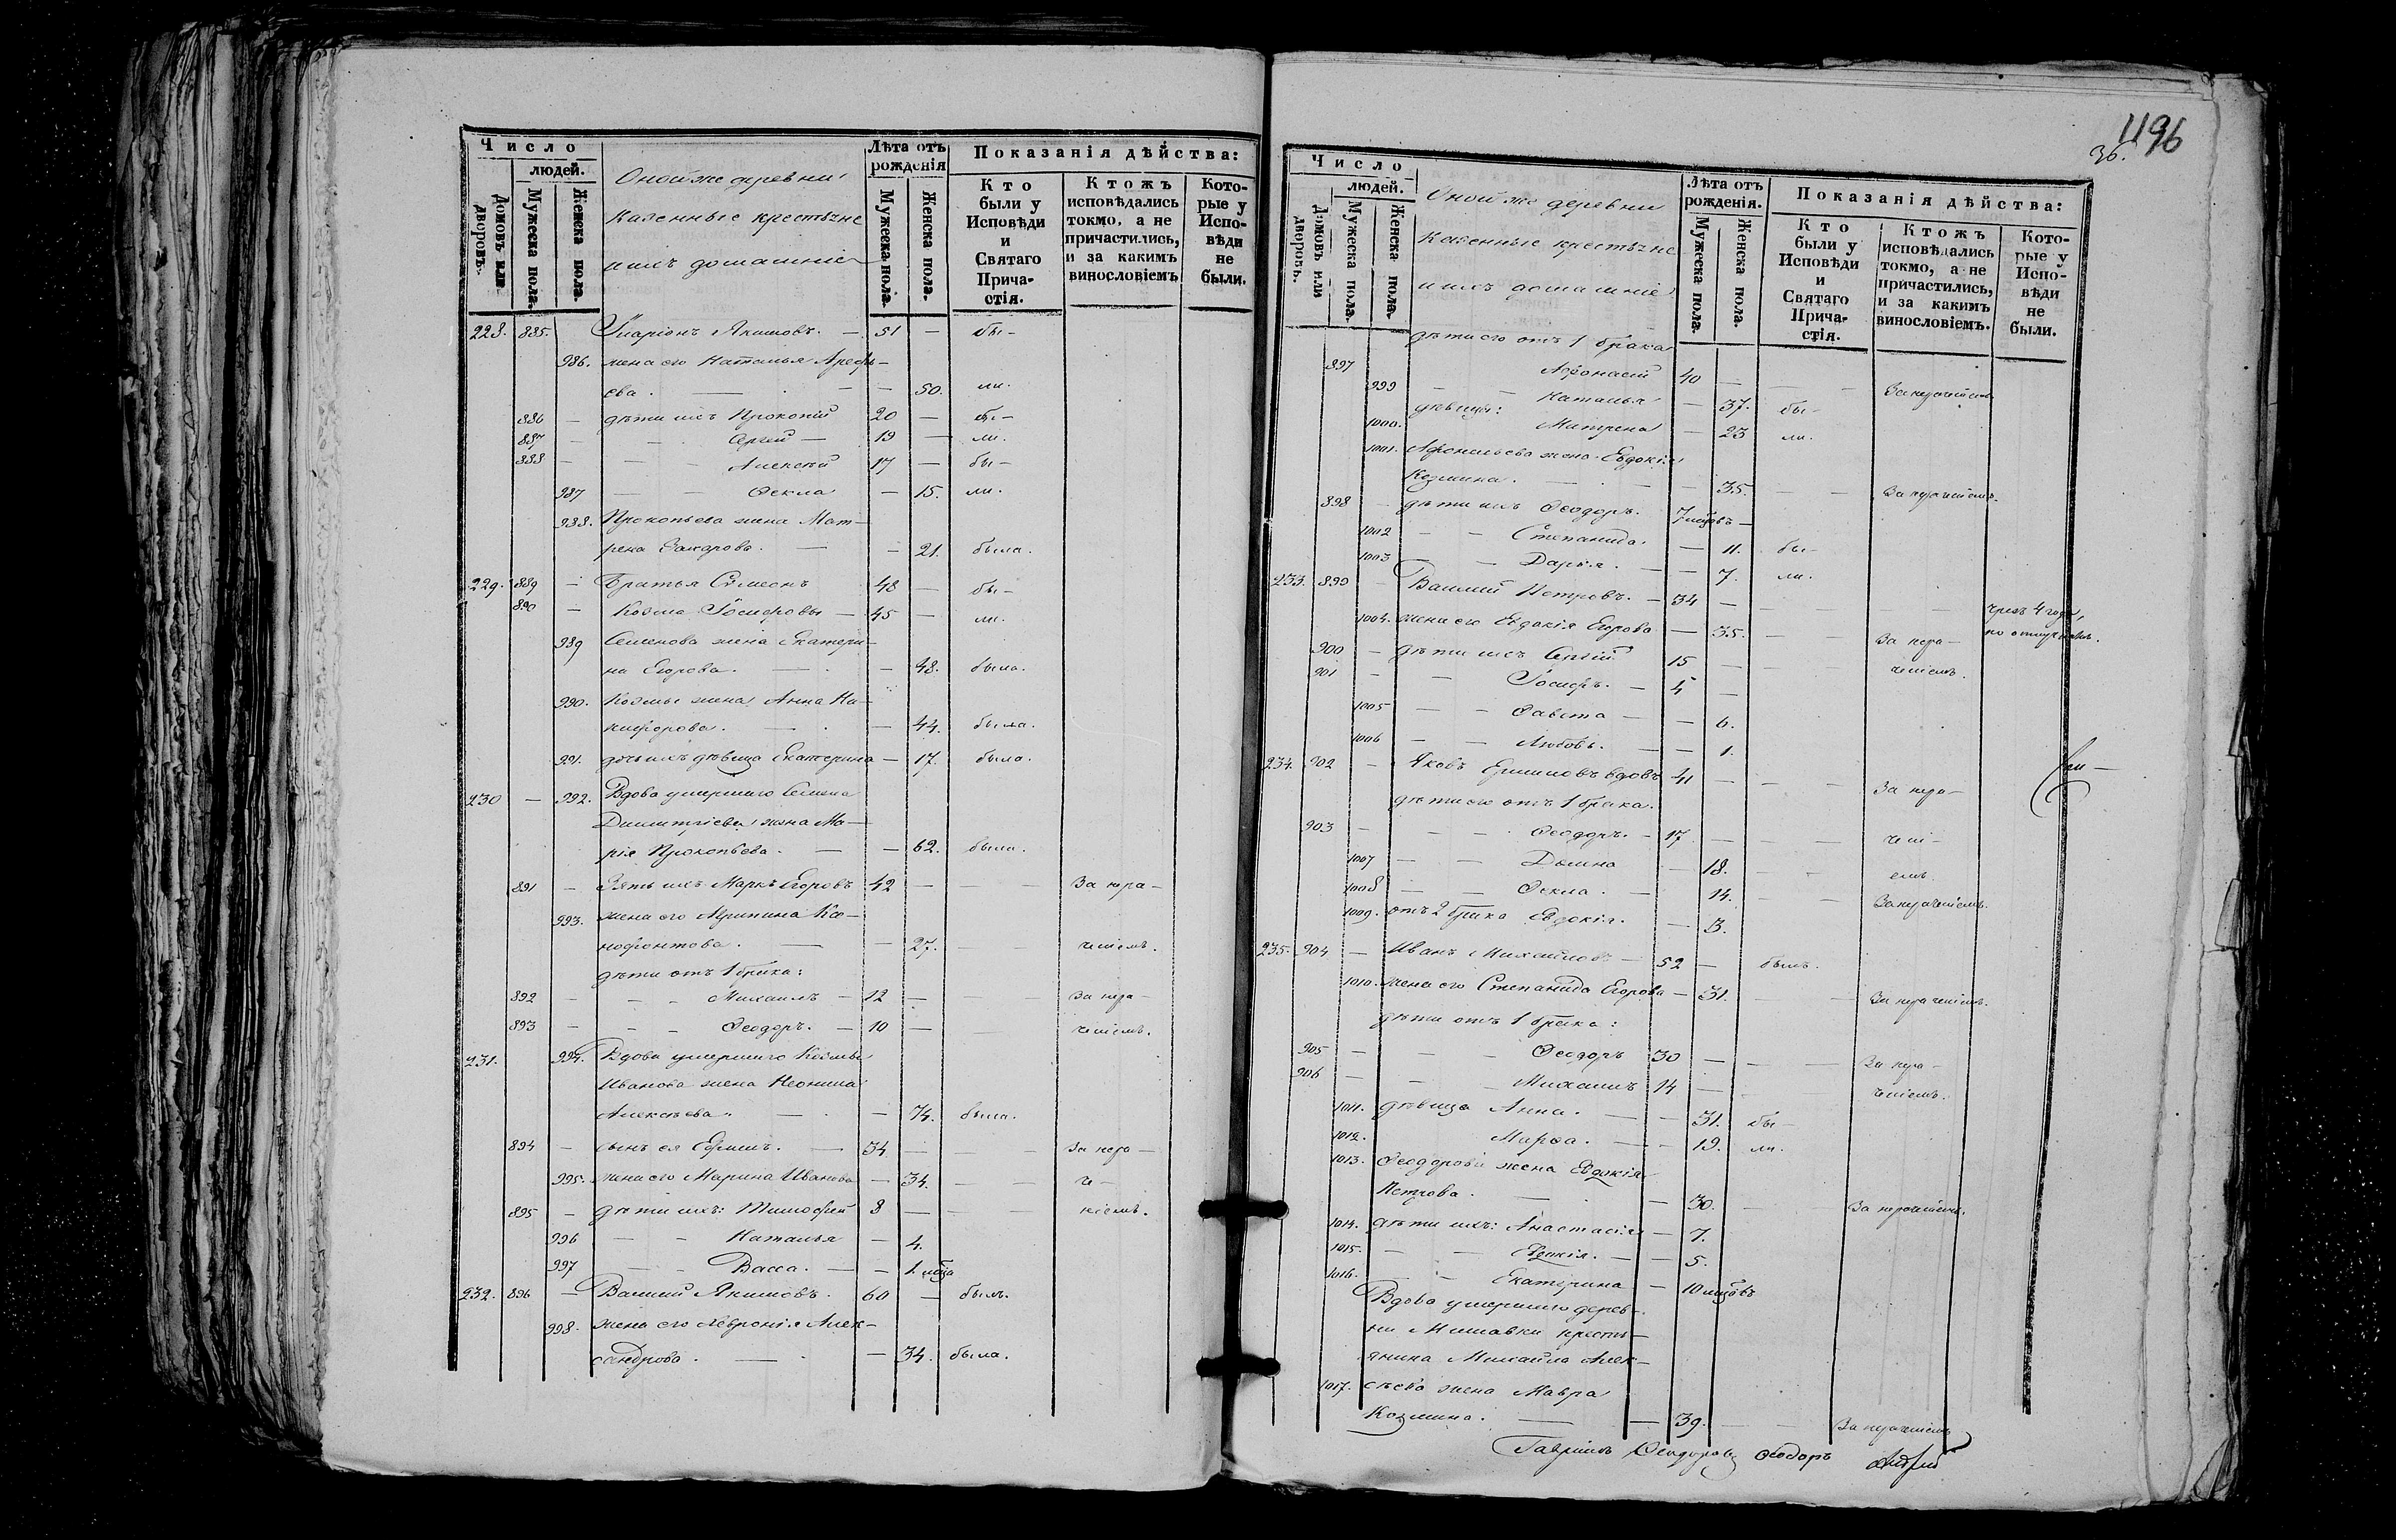 Число
людей.
Домовъ или дворовъ.
Мужеска пола.
Женска пола.
Оной же деревни
казенные крестьяне
и ихъ домашніе
Лѣта отъ рожденія
Мужеска пола.
Женска пола.
Показанія дѣйства:
Кто были у Исповѣди и Святаго Прича-стія.
Ктожъ исповѣдались токмо, а не причастились, и за какимъ винословіемъ
Кото-рые у Испо-вѣди не были.
228. 885. Иларіонъ Якимовъ. — 51 — бы-
986. жена его Наталья Арефь-
ева. — — 50. ли.
886 — дѣти ихъ Прокопій 20 — бы-
887 — — Сергей — 19 — ли.
888 — — Алексѣй 17 — бы-
987 — — Ѳекла — 15. ли.
988. Прокопьева жена Мат-
рена Захарова. — — 21. была.
229. 889 — Братья Сѵмеонъ 48 — бы-
890 — Козма Іосифовы — 45 — ли.
989 Семенова жена Екатери-
на Егорова. — — 48. была.
990. Козмы жена Анна Ни-
кифорова. — — 44. была.
991. дочь ихъ дѣвица Екатерина — 17. была.
230 — 992. Вдова умершаго Семена
Димитріева жена Ма-
рія Прокопьева. — — 62. была.
891 — Зять ихъ Марко Егоровъ 42 — — — За нера-
993. жена его Агрипина Ка-
— — 27. — — ченіемъ.
дѣти отъ 1 брака:
892 — — Михаилъ — 12 — — За нера-
893 — — Ѳеодоръ. — 10 — — ченіемъ.
231. 994. Вдова умершаго Козмы
Иванова жена Неонила
Алексѣева. — — 74. была.
894 — сынъ ея Ефимъ. — 34 — — — За нера-
995. жена его Марина Иванова — 34. — — че-
895 — дѣти ихъ: Тимофей 8 — — — ніемъ.
996 — — Наталья — 4.
997 — — Васса. — — 1. мѣца
232. 896 — Василій Якимовъ. 60 — былъ.
998. жена его Февронія Алек-
сандрова. — — 34. была.
1196
36.
Число
людей.
Домовъ или дворовъ.
Мужеска пола.
Женска пола.
Оной же деревни
казенные крестьяне
и ихъ домашніе
Лѣта отъ рожденія.
Мужеска пола.
Женска пола.
Показанія дѣйства:
Кто были у Исповѣди и Святаго Прича-стія.
Ктожъ исповѣдались токмо, а не причастились, и за какимъ винословіемъ.
Кото-рые у Испо-вѣди не были.
дѣти его отъ 1 брака
897 Афонасій 40 — — — За нераченіемъ
999 — — Наталья — 37. бы-
дѣвицы:
1000. Матрена — 23 ли.
1001. Афонасьева жена Евдокія
Козмина. — — 35. — — За нераченіемъ.
898 — дѣти ихъ Ѳеодоръ. 7 мцовъ —
1002 — — Степанида. — 11. бы-
1003 — — Дарья. — — 7. ли.
233. 899 — Василій Петровъ. — 34 — — — — чрезъ 4 года,
1004. жена его Евдокія Егорова — 35. — — За нера- по отлучкамъ.
900 — дѣти ихъ Сергій 15 — — ченіемъ.
901 — — Іосифъ. — 4 —
1005 — — — — 6.
1006 — — Любовь. — — 1.
234. 902 — Яковъ Ермиловъ вдовъ 41 — — — За нера-
дѣти его отъ 1 брака.
903 — — — Ѳеодоръ. — 17 — — — чені-
1007 — — Домна — 18. — — емъ.
1008 — — Ѳекла. — 14. — — За нераченіемъ.
1009. отъ 2 брака Евдокія. — 3.
235. 904 — Иванъ Михайловъ — 52 — былъ.
1010. жена его Степанида Егорова — 31. — — За нераченіемъ.
дѣти отъ 1 брака:
905 — — — Ѳеодоръ 30 — — — За нера-
906 — — — Михаилъ 14 — ченіемъ.
1011. дѣвица Анна. — — 31. бы-
1012. Марѳа. — — 19. ли.
1013. Ѳеодорова жена Евдокія
Петрова. — — 30. — За нераченіемъ.
1014. дѣти ихъ: Анастасія — 7.
1015. — — Евдокія. — — 5.
1016. — — Екатерина — 10 мцовъ
Вдова умершаго дерев-
ни крестья-
янина Михайла Алек-
1017. сѣева жена Мавра
Козмина. — — 39. — — За нераченіемъ
Гавріилъ Ѳеодоровъ Ѳеодоръ Андрей